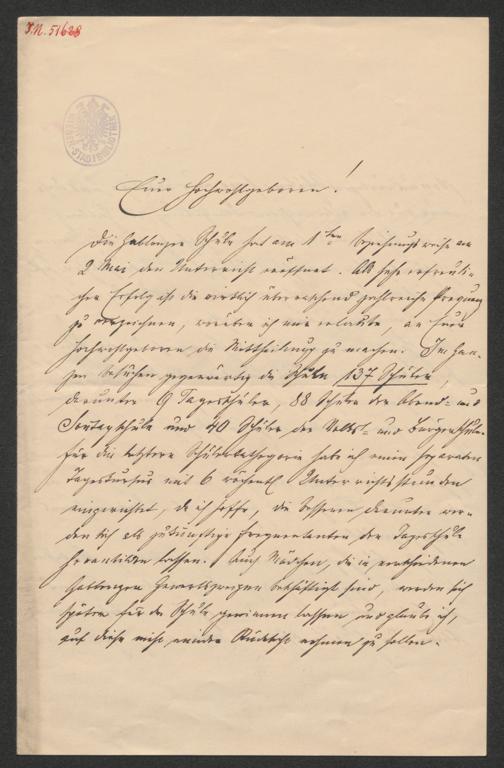 J.N. 51628
WIENER STADTBIBLIOTHEK
Euer Hochwohlgeboren!
Die Gablonzer Schule hat am 1ten beziehungsweise am
2 Mai den Unterricht eröffnet. Als sehr erfreuli-
chen Erfolg ist die wirklich überraschend zahlreiche Frequenz
zu verzeichnen, worüber ich mir erlaube, an Euer
Hochwohlgeboren die Mittheilung zu machen. Im Gan-
zen besuchen gegenwärtig die Schule 137 Schüler,
darunter 9 Tagesschüler, 88 Schüler der Abend- und
Sontagsschule und 40 Schüler der Volks- und Bürgerschule.
Für die letztere Schülerkathegorie habe ich einen separaten
Tagescursus mit 6 wöchentl. Unterrichtsstunden
eingerichtet, da ich hoffe, die besseren darunter wer-
den sich als zukünftige Frequentanten der Tagesschule
heranbilden lassen. Auch Mädchen, die in verschiedenen
Gablonzer Gewerbszweigen beschäftigt sind, werden sich
später für die Schule gewinnen lassen, und glaube ich,
auf diese nicht minder Rücksicht nehmen zu sollen.